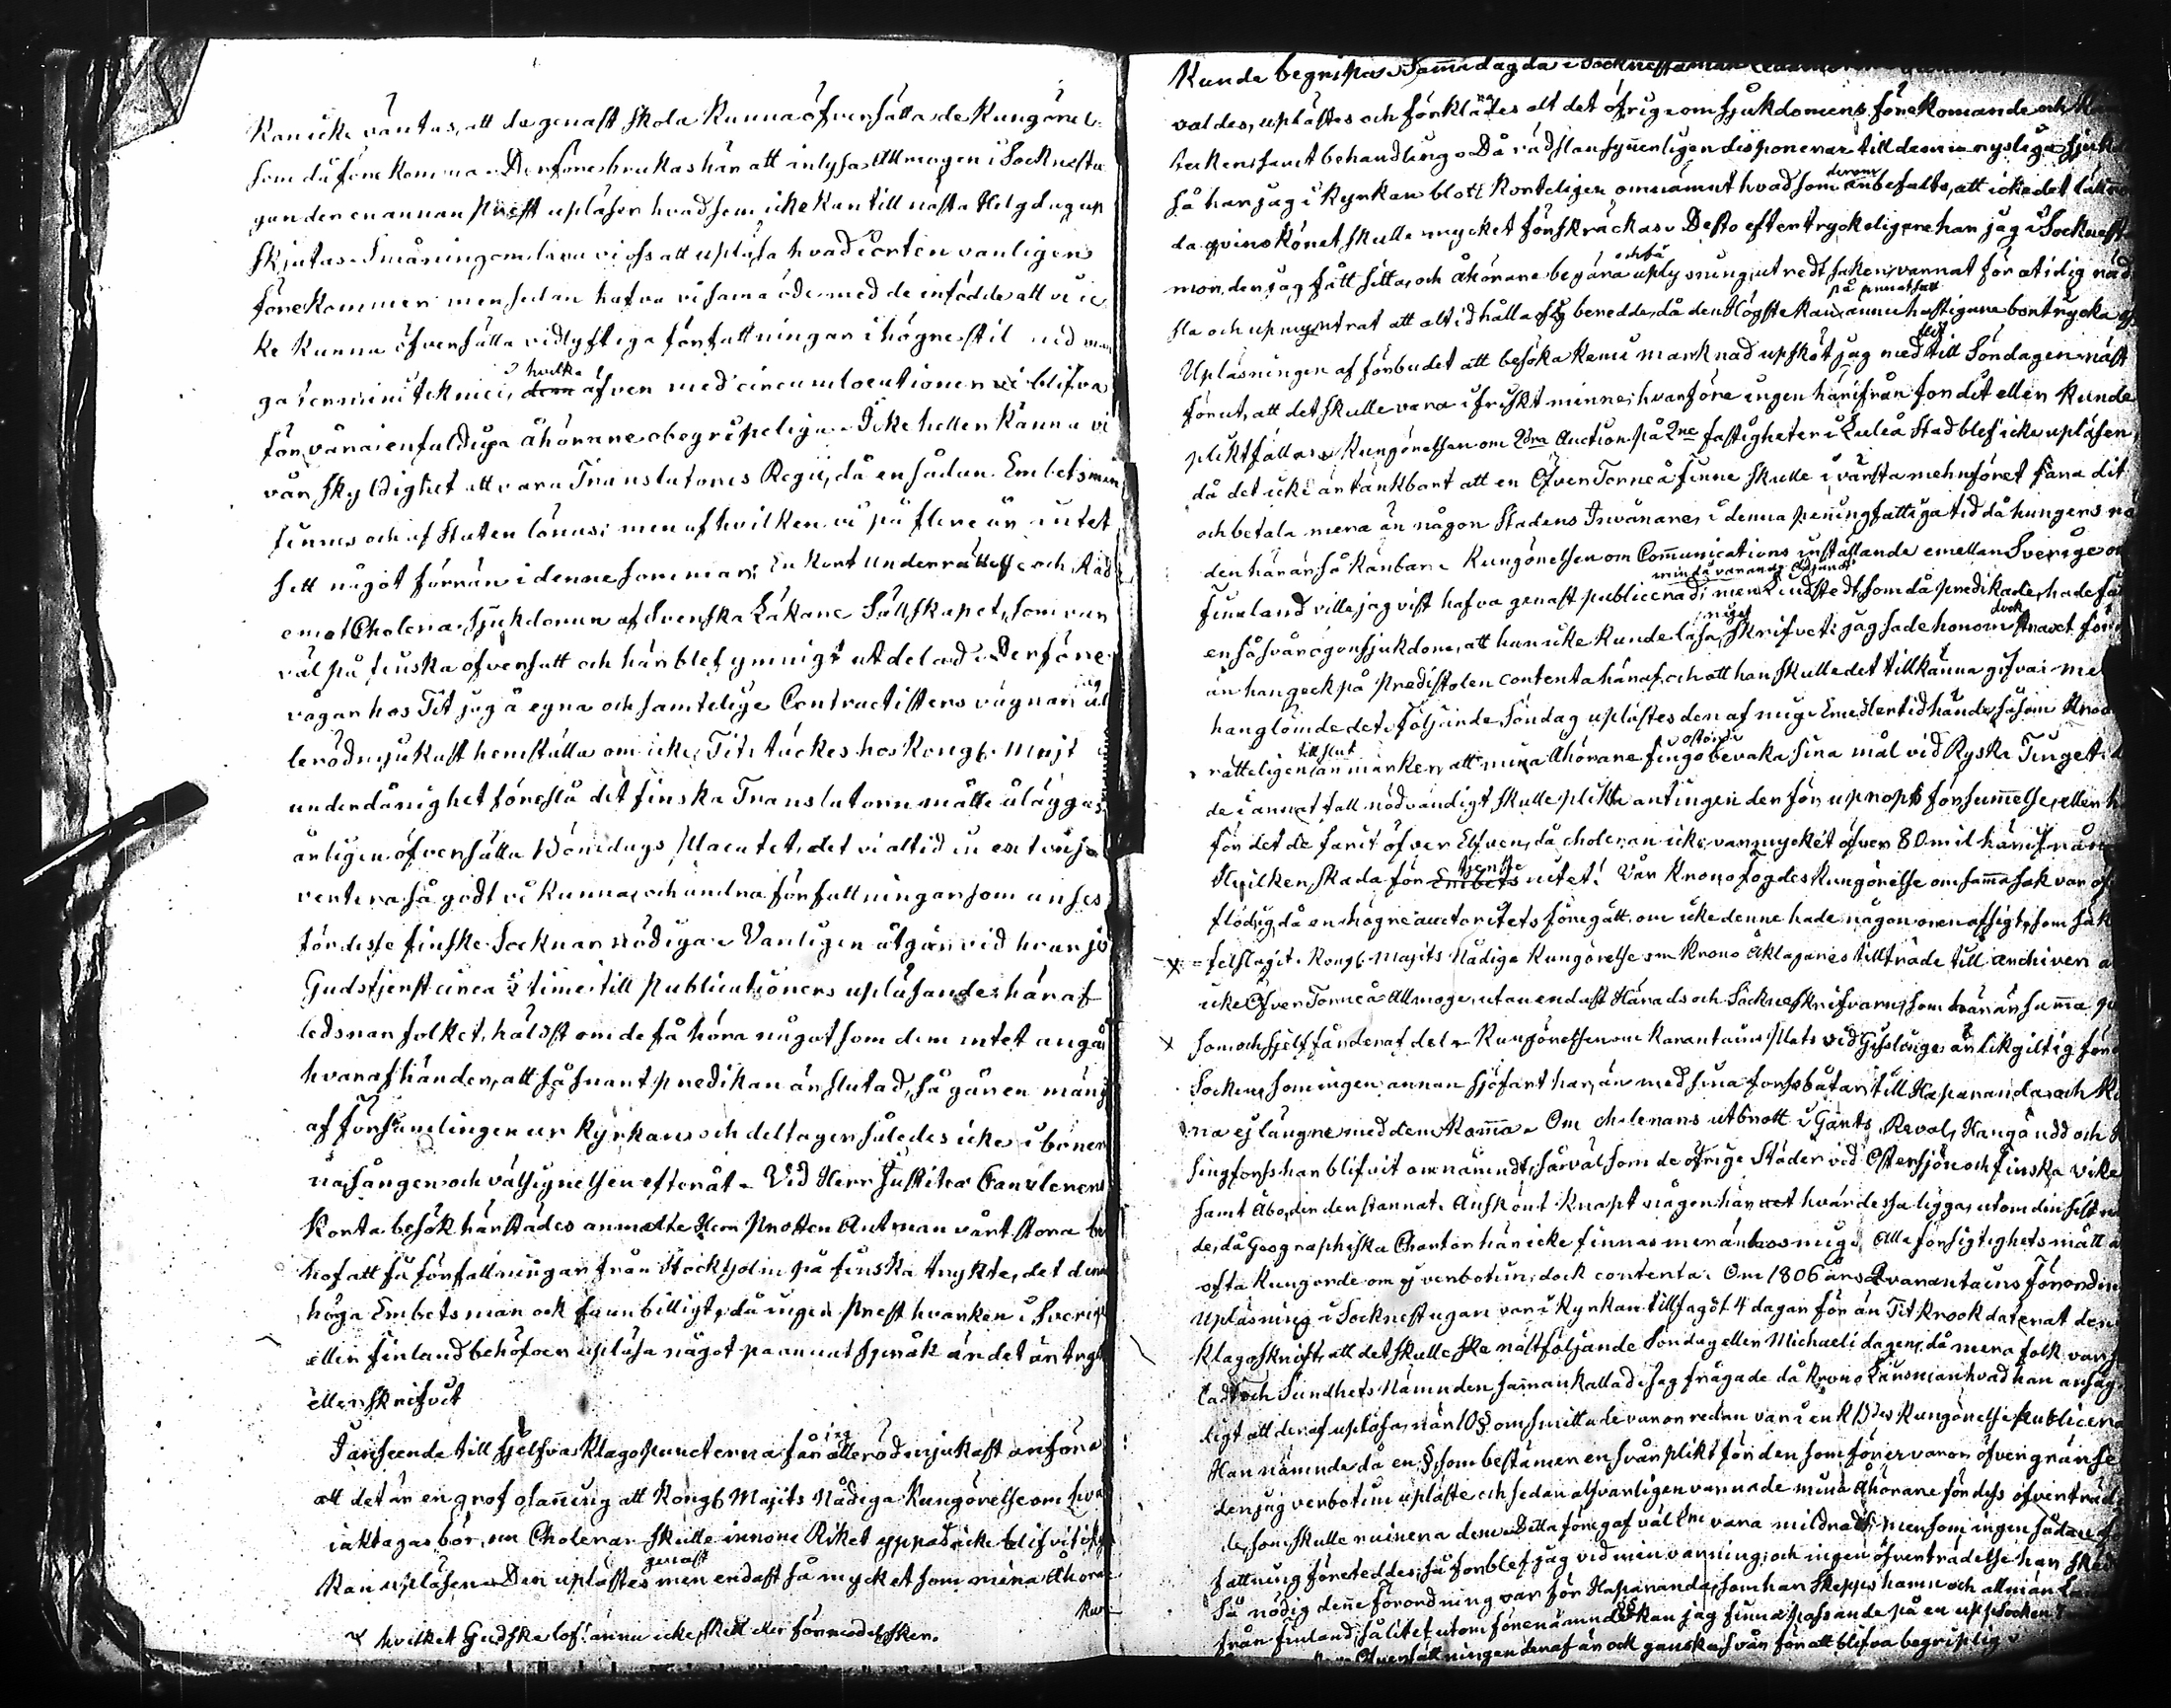 Kan icke väntas, att de genast skola kunna öfversätta de Kungörel-
som då förekomma. Derföre brukas här att inlysa Allmogen i Socknestu-
gan der en annan Prest upläser hvad som icke kan till nästa Helgdag up
skjutas. Småningom lära vi oss att upläsa hvad i orten vanligen
förekommer men sedan hafva vi sama öde med de infödde att vi ic
ke kunna öfversätta vidlyftiga författningar i högre stil med man
ga termini teknici, hvilka äfven med circumlocutioner blifva
för våra enfaldiga åhörare obegripeliga. Icke heller känna vi
vår skyldighet att vara Translatores Regii, då en sådan Embetsman
finnes och af Staten lönas; men af hvilken vi på flere år intet
sett något förrän i denne sommar; En kort underrättelse och Råd
emot Cholera-sjukdomen af Svenska Läkare Sällskapet, som var
väl på finska öfversatt och här blef ymnigt utdelad. Derföre
vågar hos Tit jag å egna och samtelige Contractisters vägnar al
lerödmjukast hemställa om icke Tit täckes hos Kongl. Majt
underdånighet föreslå det finska Translatorn måtte åläggas
årligen öfversätta Bönedags Placatet, det vi altid in
vertera så godt vi kunna, och andra författningar som anses
för desse finske Socknar nödiga. Vanligen åtgår vid hvarje
Gudstjenst circa ½ time till Publicationers upläsande; häraf
ledsnar folket, häldst om de få höra något som dem intet angår
hvaraf händer, att så snart predikan är slutad, så går en mängd
af Församlingen ur Kyrkan och deltager således icke i bönen
uti sången och välsignelsen efteråt. Vid Herr Justitiæ Canzlerens
korta besök härstädes anmälte Herr Prosten Autman vårt stora be
hof att få författningar från Stockholm på finska trykte, det den
höga Embetsman ock fann billigt, då ingen Prest hvarken i Sverige
eller Finland behöfver upläsa något på annat språk än det är trykt
eller skrifvet
I anseende till sjelfva Klagopuncterna får jag allerödmjukast anföra
att det är en grof osanning att Kongl Majts Nådiga Kungörelse om hvad
iakttagas bör, om Choleran skulle innom Riket yppas, icke blifvit i Kyr
kan upläsen. Den uplästes genast men endast så mycket som mina Åhörare
Kun-
x hvilket Gud ske lof! ännu icke skett
Kunde begripa. Samma dag då i Socknestaman
valdes, uplästes och förklarades alt det öfriga om sjukdomens förekomande och
tecken samt behandling. Då rådslan synnerligen disponerar till denna rysliga sjuk
så har jag i Kyrkan blott korteligen omnämnt hvad som derom anbefalts, att icke det lätt
da qvinskönet skulle mycket förskräckas. Desto eftertryckeligare har jag i Socknest
mor, der jag fått sitta, och åhörare begära och få uplysning, utredt saken, varnat för otidig räd
sla och upmuntrat att altid hålla sig beredde, då den Högste kan på annat sätt ännu hastigare bortrycka oss
Upläsningen af förbudet att besöka Kemi marknad upsköt jag med flit till Söndagen näst
förut, att det skulle vara i friskt minne; hvarföre ingen härifrån for dit eller kunde
pliktfällas. Kungörelsen om 2dra Auction på 2ne fastigheter i Luleå Stad blef icke upläsen,
då det icke är tänkbart att en ÖfverTorneå finne skulle i värsta menföret fara dit
och betala mera än någon Stadens Invånare, i denna peningfattiga tid då hungers nö
den här är så känbar. Kungörelsen om Communications inställande emellan Sverige och
Finland ville jag vist hafva genast publicerad; men min då varande Adjunct Lindstedt som då predikade, hade få
en så svår ögonsjukdom, att han icke kunde läsa något skrifvet; jag sade honom dock strax för
än han geck på Predikstolen contenta häraf, och att han skulle det tillkänna gifva; me
han glömde det. Följande Söndag uplästes den af mig. Emedlertid hände, såsom Krook
rätteligen till slut anmärker, att mina Åhörare fingo ostördt bevaka sina mål vid Ryska Tinget
de i annat fall nödvändigt skulle plikta antingen der för uprops försummelse, eller h
för det de farit öfver Elfven, då choleran icke var mycket öfver 80 mil härifrån
Hvilken skada för tjenste nitet! Vår Kronofogdes Kungörelse om samma sak var öf
flödig, då en högre auctoritets föregått, om icke denne hade någon annan afsigt, som fäk
felslagit. Kongl. Majts Nådiga Kungörelse om Krono Åklagares tillträde till archiven a
icke ÖfverTorneå Allmoge, utan endast Härads och Sockneskrifvaren, som här är samma
som och sjelf fänder af del. Kungörelsen om Karantains Plats vid är likgiltig för
Socken, som ingen annan sjöfart har, än med sina forsbåtar till Haparanda och
na ej längre med dem komma. Om cholerans utbrott i Revel, Hangö udd och
singfors har blifvit omnämndt, såväl som de öfrige Städer vid Östersjön och Finska vike
samt Åbo, der den stannat. Annskönt knapt någon här vet hvar dessa ligga, utom den sist
de, då Geographiska Chartor här icke finnas mer än hos mig. Alla försigtighets mått
ofta kungorde om ej verbotim, dock contenta. Om 1806 års Qvarantains Förordning
Upläsning i Socknestugan var i Kyrkan tillsagdt 4 dagar för än Tit Krook daterat den
Klagoskrift, att det skulle ske nästföljande Söndag eller Michaeli dagen, då mera folk var
ladt och Sundhets Nämnden samankallad. Jag frågade då Krono Länsman hvad han ansåg
ligt att deraf upläsa, när 10 § om smittade varor redan var i en K B:des Kungörelse publicera
Han nämnde då en §, som bestämmer en svår plikt för den som förer varor öfver gränse
den jag verbotim upläste och sedan alfvarligen varnade mina Åhörare för dess öfverträd
de, som skulle ruinera dem. Detta föregaf väl Lm vara mildradt; men som ingen sådan
fattning företeddes, så forblef jag vid min varning; och ingen öfverträdelse har sked
Så nödig denne Förordning var för Haparanda, som har Skepps hamn och allmän
från Finland, så litet utom förenämnde §§ kan jag finna passande på en uppSocken
Öfversättningen deraf är ock ganska svår för att blifva begriplig